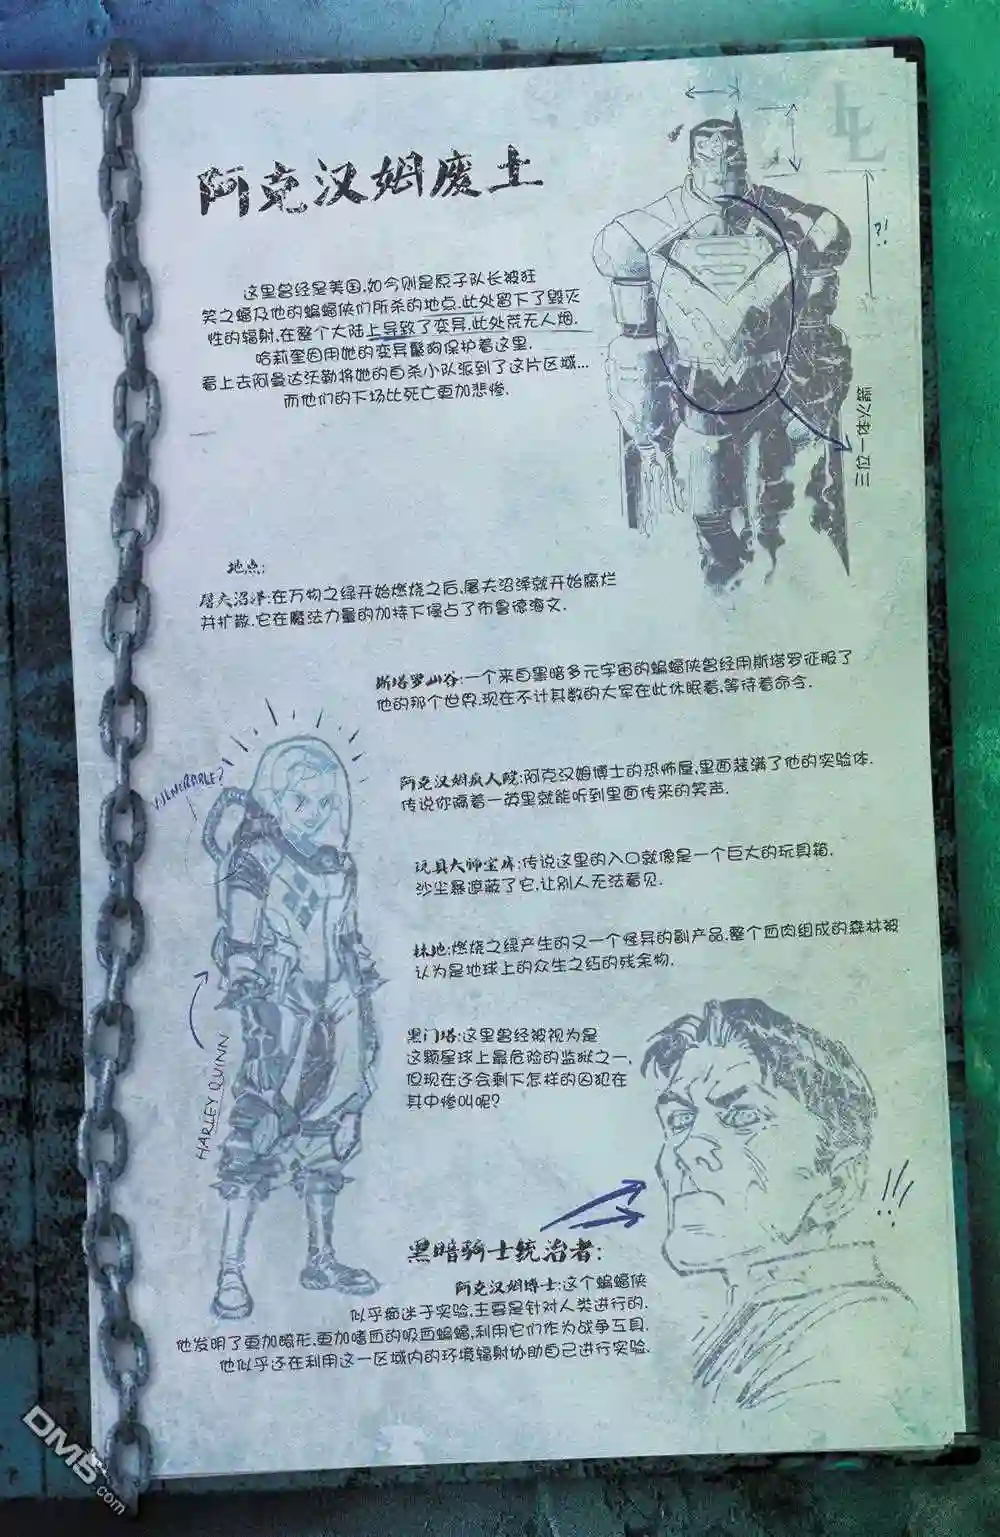 LL
阿克汉姆废土
?!
这里曾经是美国,如今则是原子队长被狂
笑之蝠及他的蝙蝠侠们所杀的地点.此处留下了毁灭
性的辐射,在整个大陆上导致了变异.此处荒无人烟.
哈莉奎因用她的变异鬣狗保护着这里.
看上去阿曼达沃勒将她的自杀小队派到了这片区域...
而他们的下场比死亡更加悲惨.
三位一体火燃
地点:
屠夫沼泽:在万物之绿开始燃烧之后,屠夫沼泽就开始腐烂
并扩散.它在魔法力量的加持下侵占了布鲁德海文.
斯塔罗山谷:一个来自黑暗多元宇宙的蝙蝠侠曾经用斯塔罗征服了
他的那个世界.现在不计其数的大军在此休眠着,等待着命令.
VULNERABLE?
阿克汉姆疯人院:阿克汉姆博士的恐怖屋,里面装满了他的实验体.
传说你隔着一英里就能听到里面传来的笑声.
玩具大师宝库:传说这里的入口就像是一个巨大的玩具箱.
沙尘暴遮蔽了它,让别人无法看见.
林地:燃烧之绿产生的又一个怪异的副产品,整个血肉组成的森林被
认为是地球上的众生之红的残余物.
黑门塔:这里曾经被视为是
这颗星球上最危险的监狱之一,
但现在还会剩下怎样的囚犯在
其中惨叫呢?
HARLEY QUINN
!!!
黑暗骑士统治者:
阿克汉姆博士:这个蝙蝠侠
似乎痴迷于实验,主要是针对人类进行的.
他发明了更加畸形,更加嗜血的吸血蝙蝠,利用它们作为战争工具.
他似乎还在利用这一区域内的环境辐射协助自己进行实验.
DM5.com